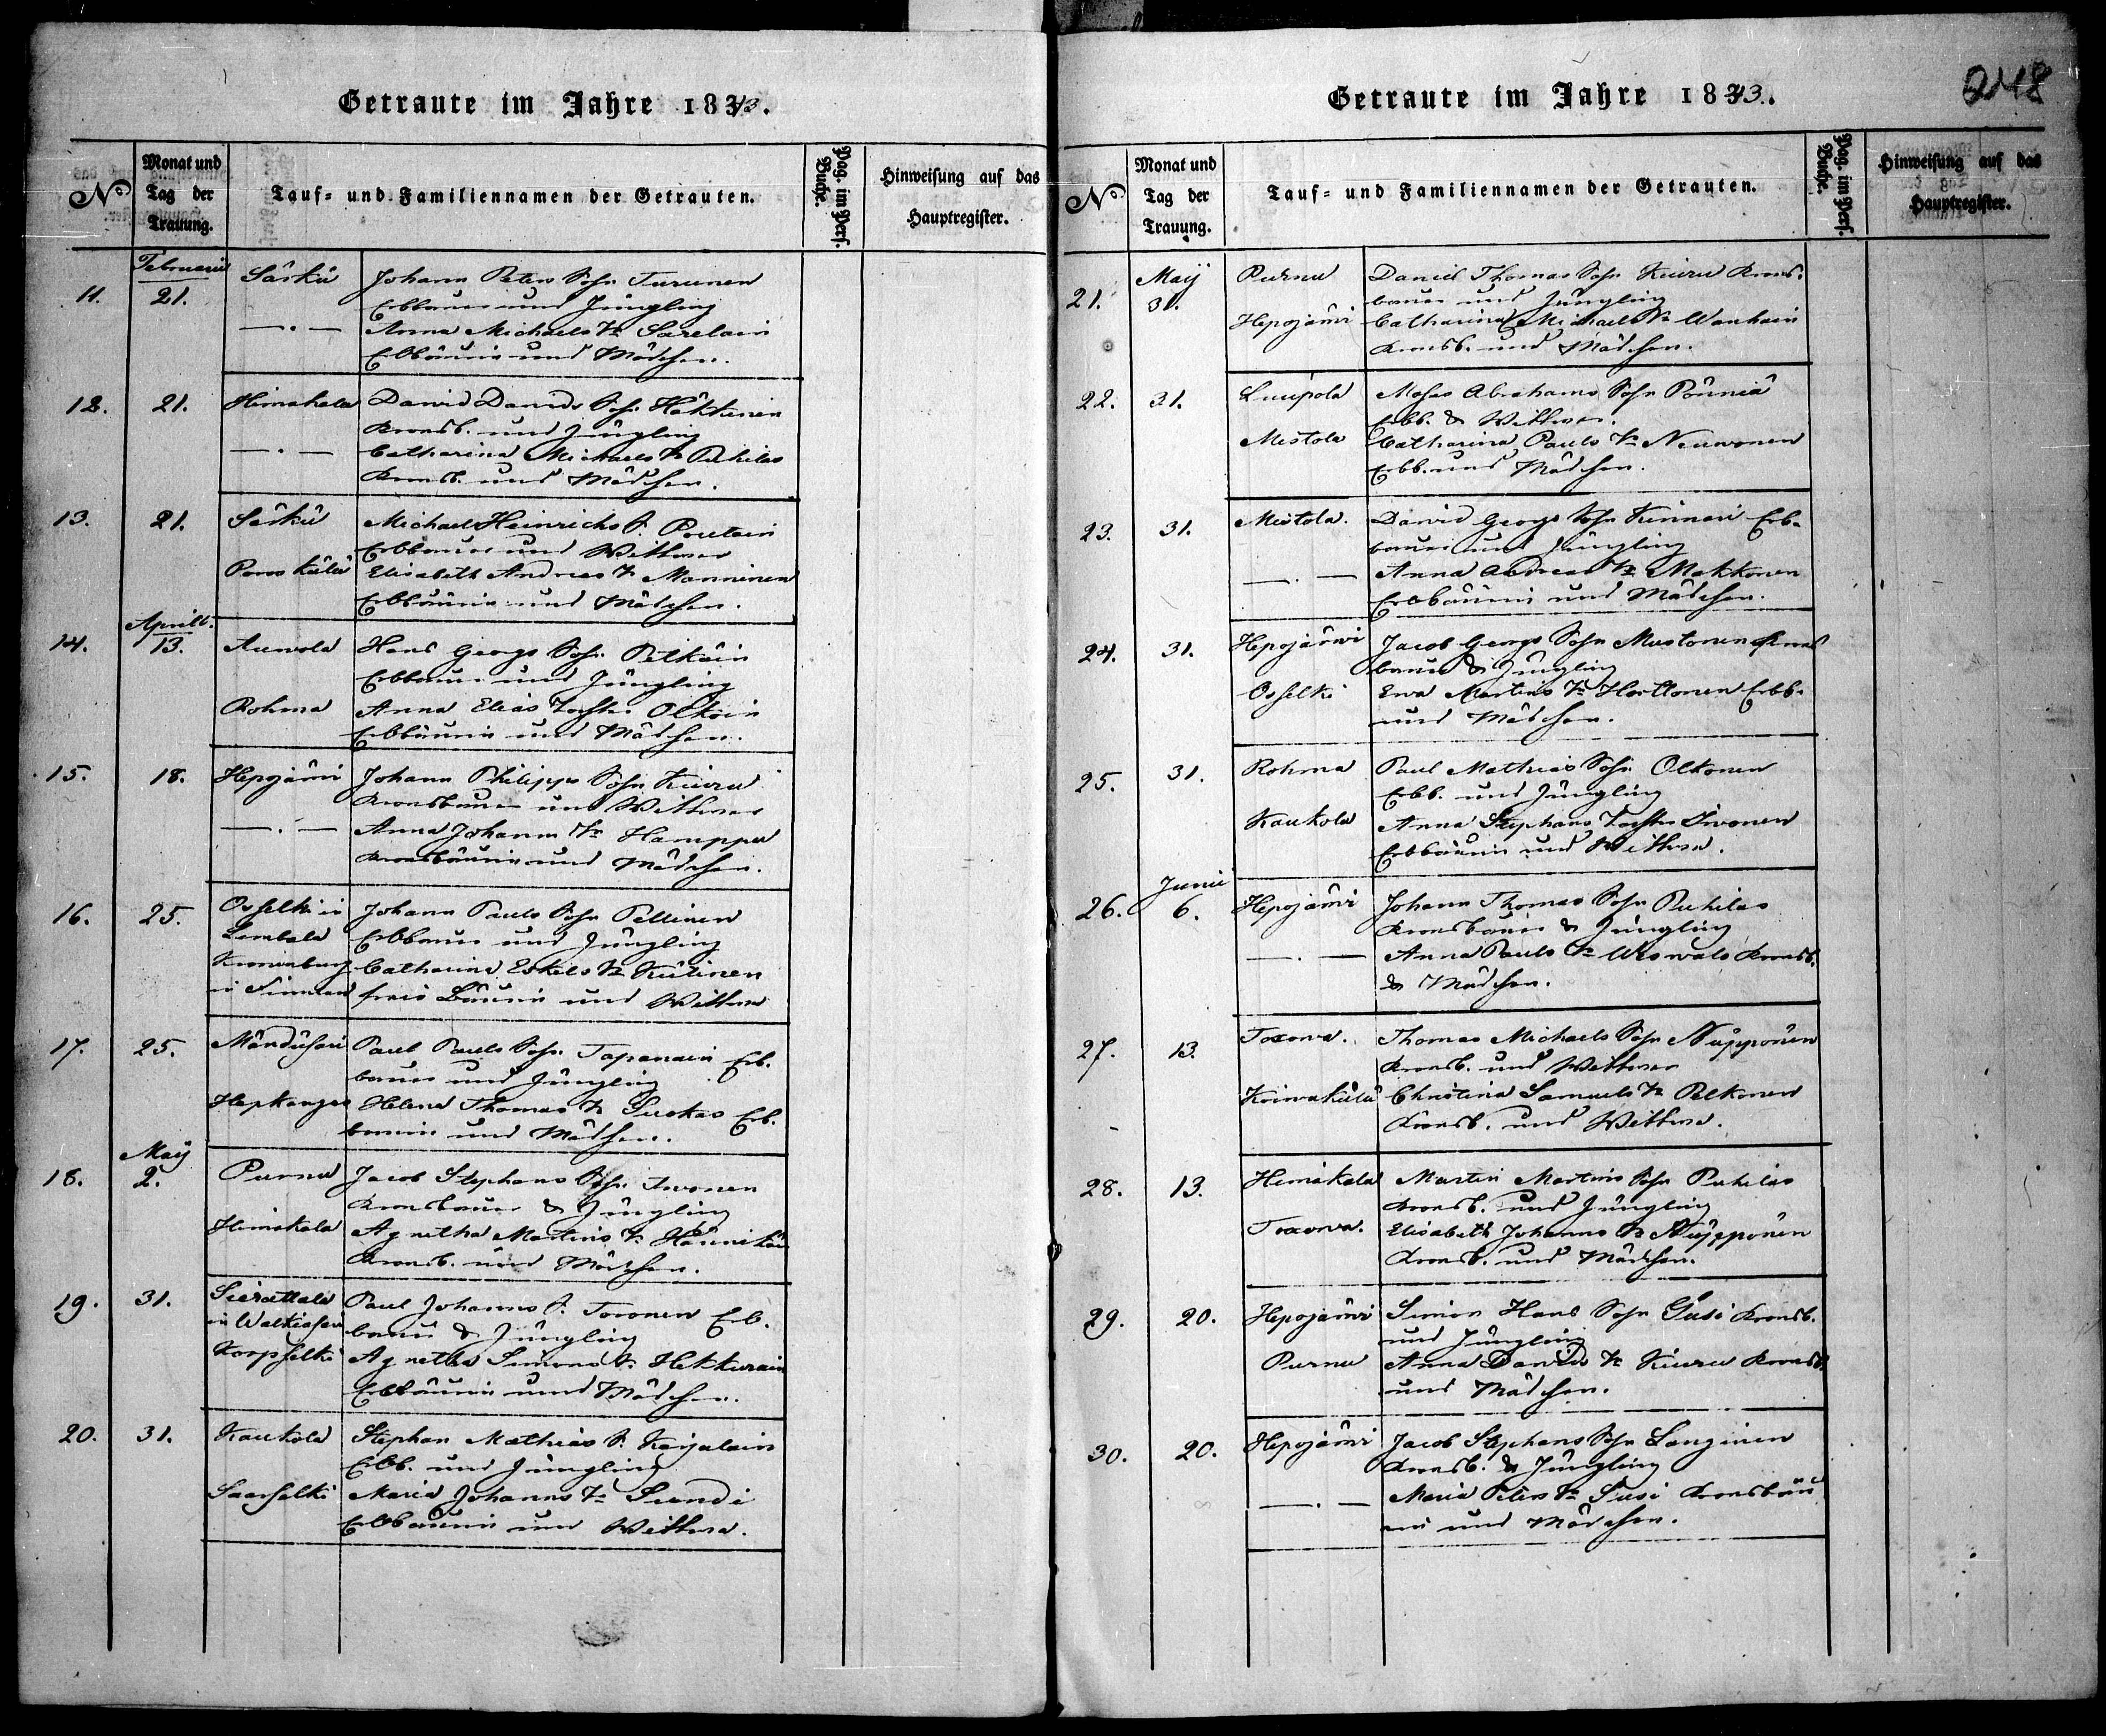 Getraute im Jahre 1843.
No Monat und Tag der Trauung. Tauf= und Familiennamen der Getrauten. Pag. im Pers. Buche. Hinweisung auf das Hauptregister.
Februarii
11. 21. Särkü Johann Peters Sohn Turunen
Erbbauer und Jüngling
—.— Anna Michaels Tr Sarelain
Erbbäurin und Mädchen.
12. 21. Himakala David Davids Sohn Häkkinen
Kronsb. und Jüngling
—.— Catharina Michaels Tr Puhilas
Kronsb. und Mädchen.
13. 21. Särkü Michael Heinrichs S. Poutain
Erbbauer und Wittwer
Poroskülä Elisabeth Andreas Tr Manninen
Erbbäurin und Mädchen.
Aprill.
14. 13. Auwola Hans Georgs Sohn Pelkäin
Erbbauer und Jüngling
Rohma Anna Elias Tochter Olkoin
Erbbäurin und Mädchen.
15. 18. Hepojärwi Johann Philipps Sohn Kiuru
Kronsbauer und Wittwer
—.— Anna Johanns Tr Hamppu
Kronsbäurin und Mädchen.
16. 25. Osselki in Johann Pauls Sohn Pellinen
Lembala Erbbauer und Jüngling
Kronenburg Catharina Eskels Tr Kütinen
in Finnland freie Bäurin und Wittwe
17. 25. Mändüsari Paul Pauls Sohn Tapanain Erb.
bauer und Jüngling
Hapkanges Helena Thomas Tr Suokas Erb.
bäurin und Mädchen.
Maij
18. 2. Purnu Jacob Stephans Sohn Iwonen
Kronsbauer & Jüngling
Himakala Agnetha Martins Tr Hännikäi
Kronsb. und Mädchen.
19. 31. Sierattala Paul Johanns S. Toronen Erb.
in Walkiasari bauer & Jüngling
Korpselki Agnetha Simons Tr Hekkurain
Erbbäurin und Mädchen.
20. 31. Kaukola Stephan Mathias S. Karjalain
Erbb. und Jüngling
Saarselki Maria Johanns Tr Sundi
Erbbäurin und Wittwe.
Getraute im Jahre 1843.
248
No Monat und Tag der Trauung. Tauf= und Familiennamen der Getrauten. Pag. im Pers. Buche. Hinweisung auf das Hauptregister.
Maij
21. 31. Purnu Daniel Thomas Sohn Kiuru Krons.
bauer und Jüngling
Hepojärwi Catharina Michaels Tr Wanhain
Kronsb. und Mädchen.
22. 31. Luupola Moses Abrahams Sohn Pönniä
Erbb. & Wittwer.
Mistola Catharina Pauls Tr Neuwonen
Erbb. und Mädchen.
23. 31. Mistola. David Georgs Sohn Kinnari Erb.
bauer und Jüngling
—.— Anna Andreas Tr Makkonen
Erbbäurin und Mädchen.
24. 31. Hepojärwi Jacob Georgs Sohn Mustonen Krons
bauer & Jüngling
Osselki Ewa Martins Tr Horttonen Erbb.
und Mädchen.
25. 31. Rohma Paul Mathias Sohn Olkonen
Erbb. und Jüngling
Kaukola Anna Stephans Tochter Iwonen
Erbbäurin und Wittwe.
Junii
26. 6. Hepojärwi Johann Thomas Sohn Puhilas
Kronsbauer & Jüngling
—.— Anna Pauls Tr Kronsb.
& Mädchen.
27. 13. Toxowa. Thomas Michaels Sohn Nüppönen
Kronsb. und Wittwer
Koiwakülä Christina Samuels Tr Pelkonen
Kronsb. und Wittwe.
28. 13. Himakala Martin Martins Sohn Puhilas
Kronsb. und Jüngling
Toxowa. Elisabeth Johanns Tr Nüppönen
Kronsb. und Mädchen.
29. 20. Hepojärwi Simon Hans Sohn Susi Kronsb.
und Jüngling
Purnu Anna Davids Tr Kiuru Kronsb.
und Mädchen.
30. 20. Hepojärwi Jacob Stephans Sohn Langinen
Kronsb. & Jüngling
—.— Maria Peters Tr Susi Kronsbäu
rin und Mädchen.